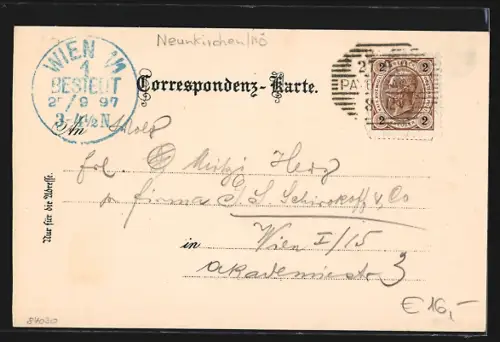 Neunkirchen/NÖ
WIEN 1/1
1
BESTELLT
25/9 97
3-4½N
Correspondenz-Karte.
2 2
2 2
An
Frl. Mitzi Herz
pr firma J. S. Schirokoff & Co
in Wien I/15
Akademiestr 3
Nur für die Adresse.
€ 16,-
84030